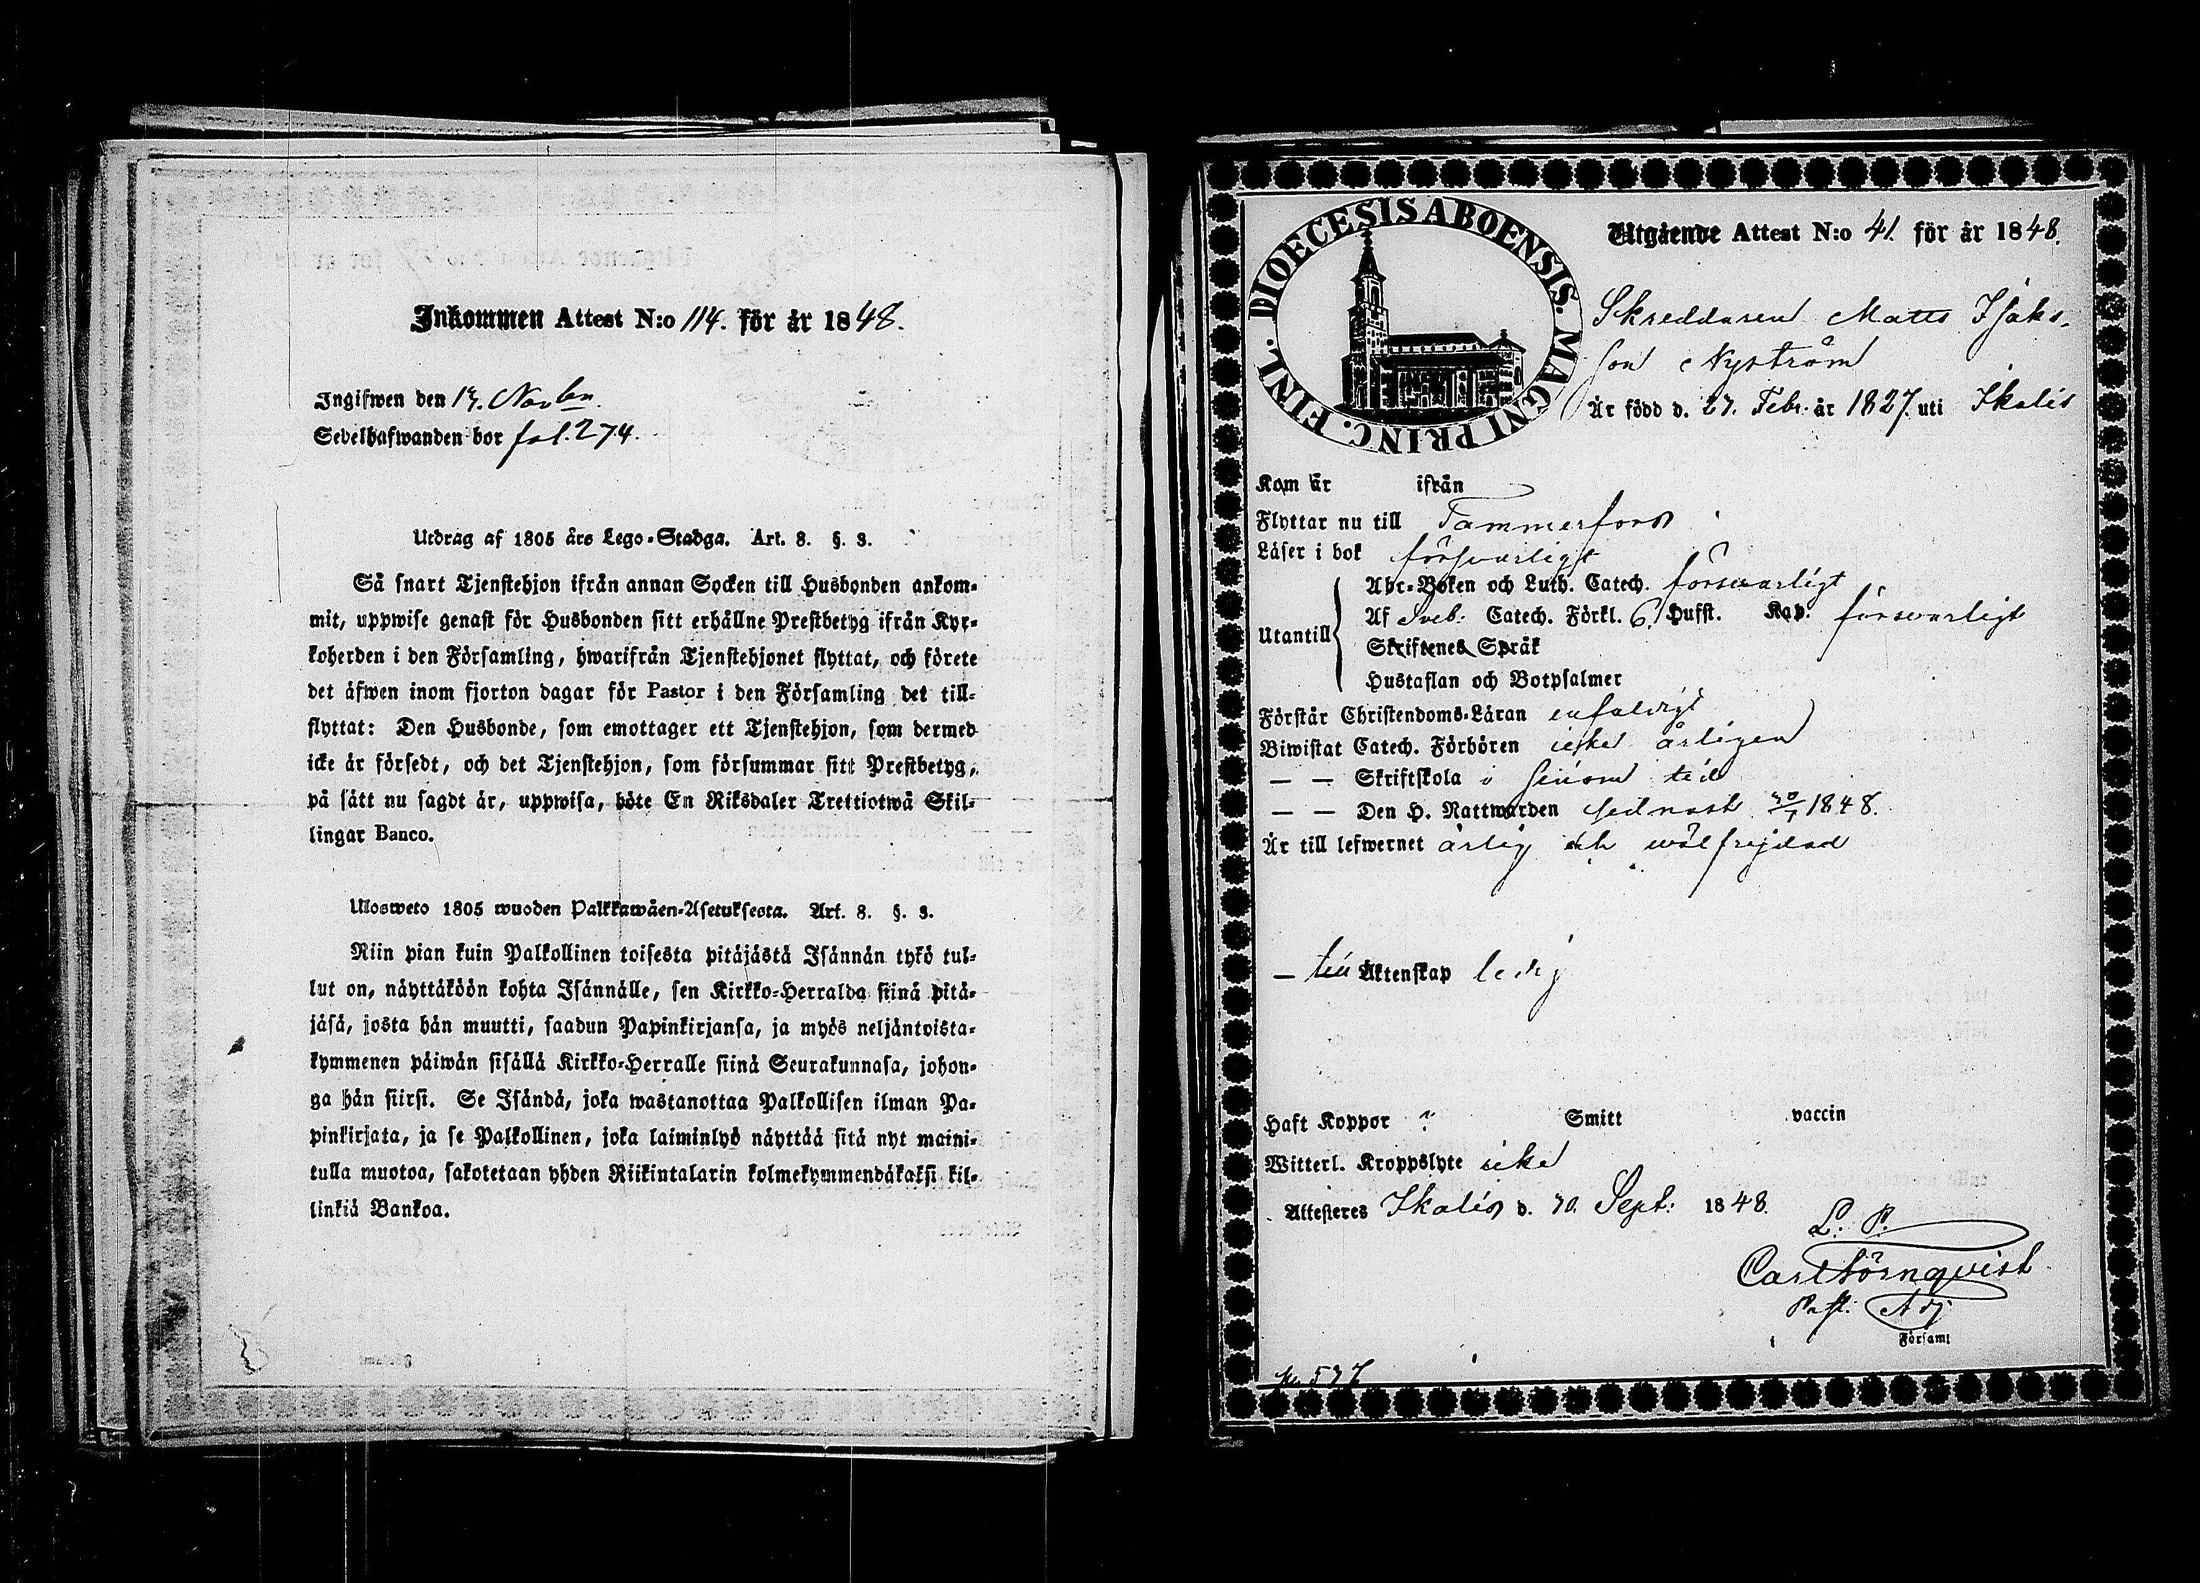 Inkommen Attest N:o 114. för år 1848.
Ingifwen den 13. Novbr.
Sedelhafwanden bor fol. 274.
Utdrag af 1805 års Lego-Stadga. Art. 8. §. 3.
Så snart Tjenstehjon ifrån annan Socken till Husbonden ankom-
mit, uppwise genast för Husbonden sitt erhållne Prestbetyg ifrån Kyr-
koherden i den Församling, hwarifrån Tjenstehjonet flyttat, och förete
det äfwen inom fjorton dagar för Pastor i den Församling det till-
flyttat: Den Husbonde, som emottager ett Tjenstehjon, som dermed
icke är försedt, och det Tjenstehjon, som försummar sitt Prestbetyg,
på sätt nu sagdt är, uppwisa, böte En Riksdaler Trettiotwå Skil-
lingar Banco.
Ulosweto 1805 wuoden Palkkawäen-Asetuksesta. Art. 8. §. 3.
Niin pian kuin Palkollinen toisesta pitäjästä Isännän tykö tul-
lut on, näyttäköön kohta Isännälle, sen Kirkko-Herralda siinä pitä-
jäsä, josta hän muutti, saadun Papinkirjansa, ja myös neljäntoista-
kymmenen päiwän sisällä Kirkko-Herralle siinä Seurakunnasa, johon-
ga hän siirsi. Se Isändä, joka wastanottaa Palkollisen ilman Pa-
pinkirjata, ja se Palkollinen, joka laiminlyö näyttää sitä nyt maini-
tulla muotoa, sakotetaan yhden Riikintalarin kolmekymmendäkaksi kil-
linkiä Bankoa.
DIOECESIS ABOENSIS. MAGNI PRINC. FINL.
Utgående Attest N:o 41. för år 1848.
Skreddaren Matts Isaks-
son Nyström
Är född d. 27. Febr. år 1827. uti Ikalis
Kom år ifrån
Flyttar nu till Tammerfors
Läser i bok försvarligt
Utantill
Abc-Boken och Luth. Catech. försvarligt
Af Sveb: Catech. Förkl. 6. Hufst. Kap. försvarligt
Skriftenes Språk
Hustaflan och Botpsalmer
Förstår Christendoms-Läran enfaldigt
Biwistat Catech. Förhören icke årligen
— — Skriftskola i sinom tid
— — Den H. Nattwarden sednast 30/7 1848.
Är till lefwernet ärlig och wälfrejdad
— till Äktenskap ledig
Haft Koppor Smitt vaccin
Witterl. Kroppslyte icke
Attesteras Ikalis d. 30. Sept: 1848.
L. P.
Carl Törnqvist
Past: Adj
Församl